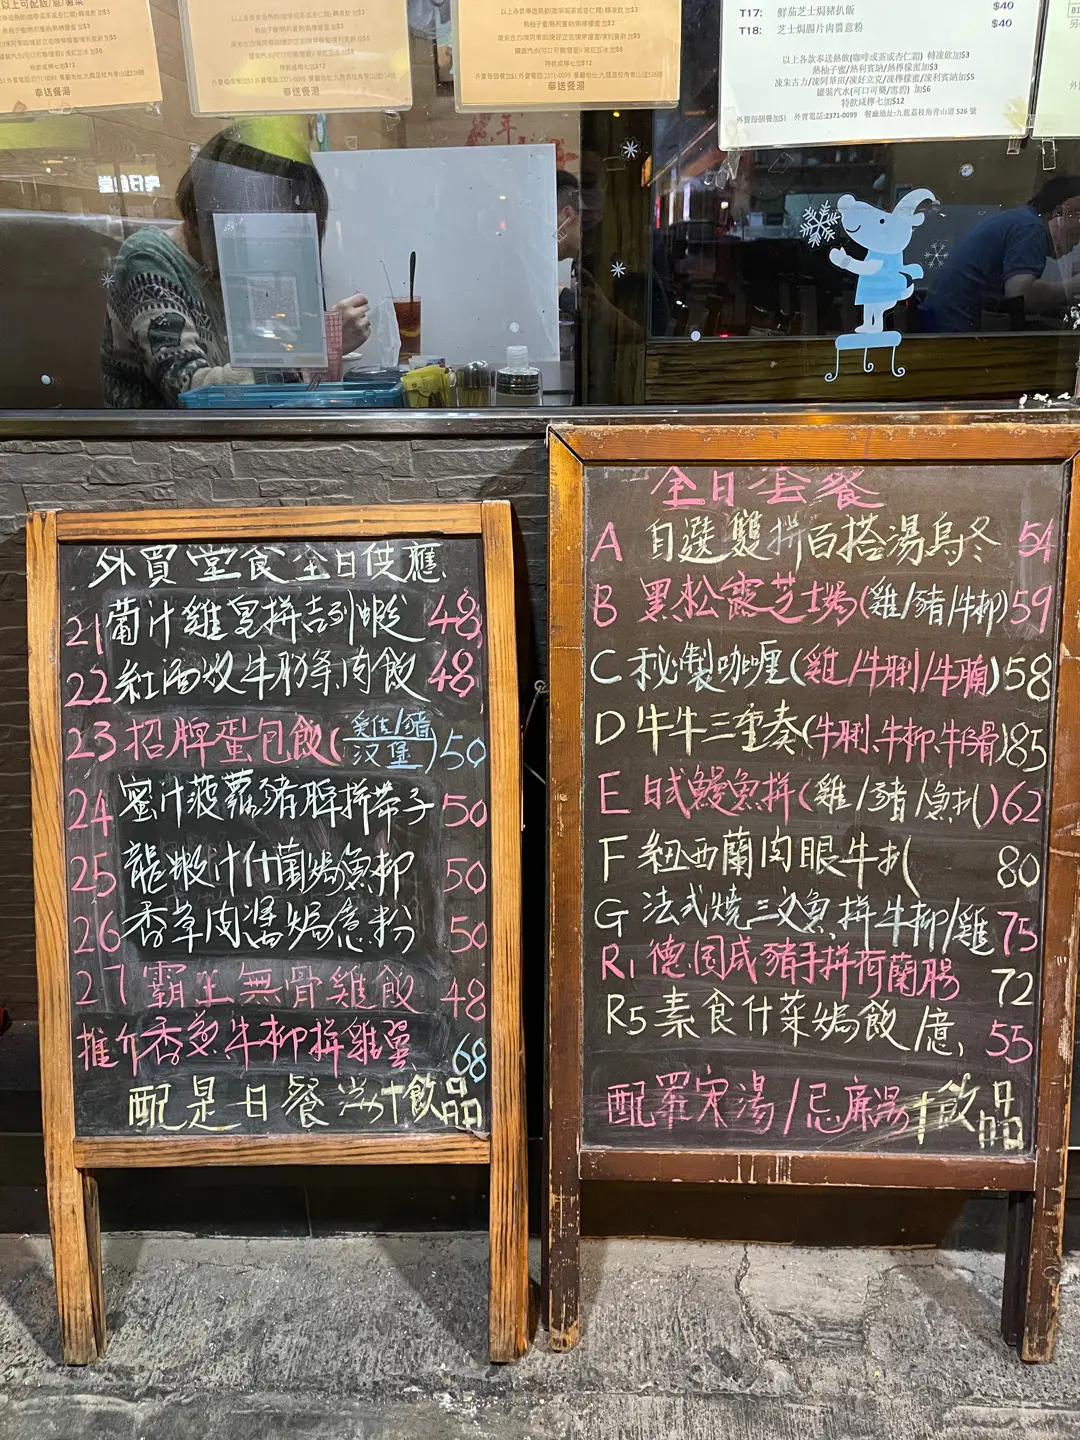 T17: 鮮茄芝士焗豬扒飯 $40
T18: 芝士焗腸片肉醬意粉 $40
以上各款奉送熱飲(咖啡或茶或杏仁霜) 轉凍飲加$3
熱柚子蜜/熱利賓納/熱檸檬蜜加$3
凍朱古力/凍阿華田/凍好立克/凍檸蜜/凍利賓納加$5
罐裝汽水(可口可樂/雪碧) 加$6
特飲咸檸七加$12
外賣每個餐加$1 外賣電話:2371-0099 餐廳地址:九龍荔枝角青山道 526 號
奉送餐湯
奉送餐湯
奉送餐湯
外買堂食全日供應
21 葡汁雞皇拼吉列蝦 48
22 紅酒炆牛肋条肉飯 48
23 招牌蛋包飯(雞/豬/汉堡) 50
24 蜜汁菠蘿豬脾拼帶子 50
25 龍蝦汁什菌焗魚柳 50
26 香草肉醬焗意粉 50
27 霸王無骨雞飯 48
推介香煎牛柳拼雞翼 68
配是日餐湯+飲品
全日套餐
A 自選雙拼百搭湯烏冬 54
B 黑松露芝士焗(雞/豬/牛柳) 59
C 秘製咖喱(雞/牛脷/牛腩) 58
D 牛牛三重奏(牛脷、牛柳、牛仔骨) 85
E 日式鰻魚拼(雞/豬/魚扒) 62
F 紐西蘭肉眼牛扒 80
G 法式燒三文魚拼牛柳/雞 75
R1 德国咸豬手拼荷蘭腸 72
R5 素食什菜焗飯/意 55
配羅宋湯/忌廉湯+飲品